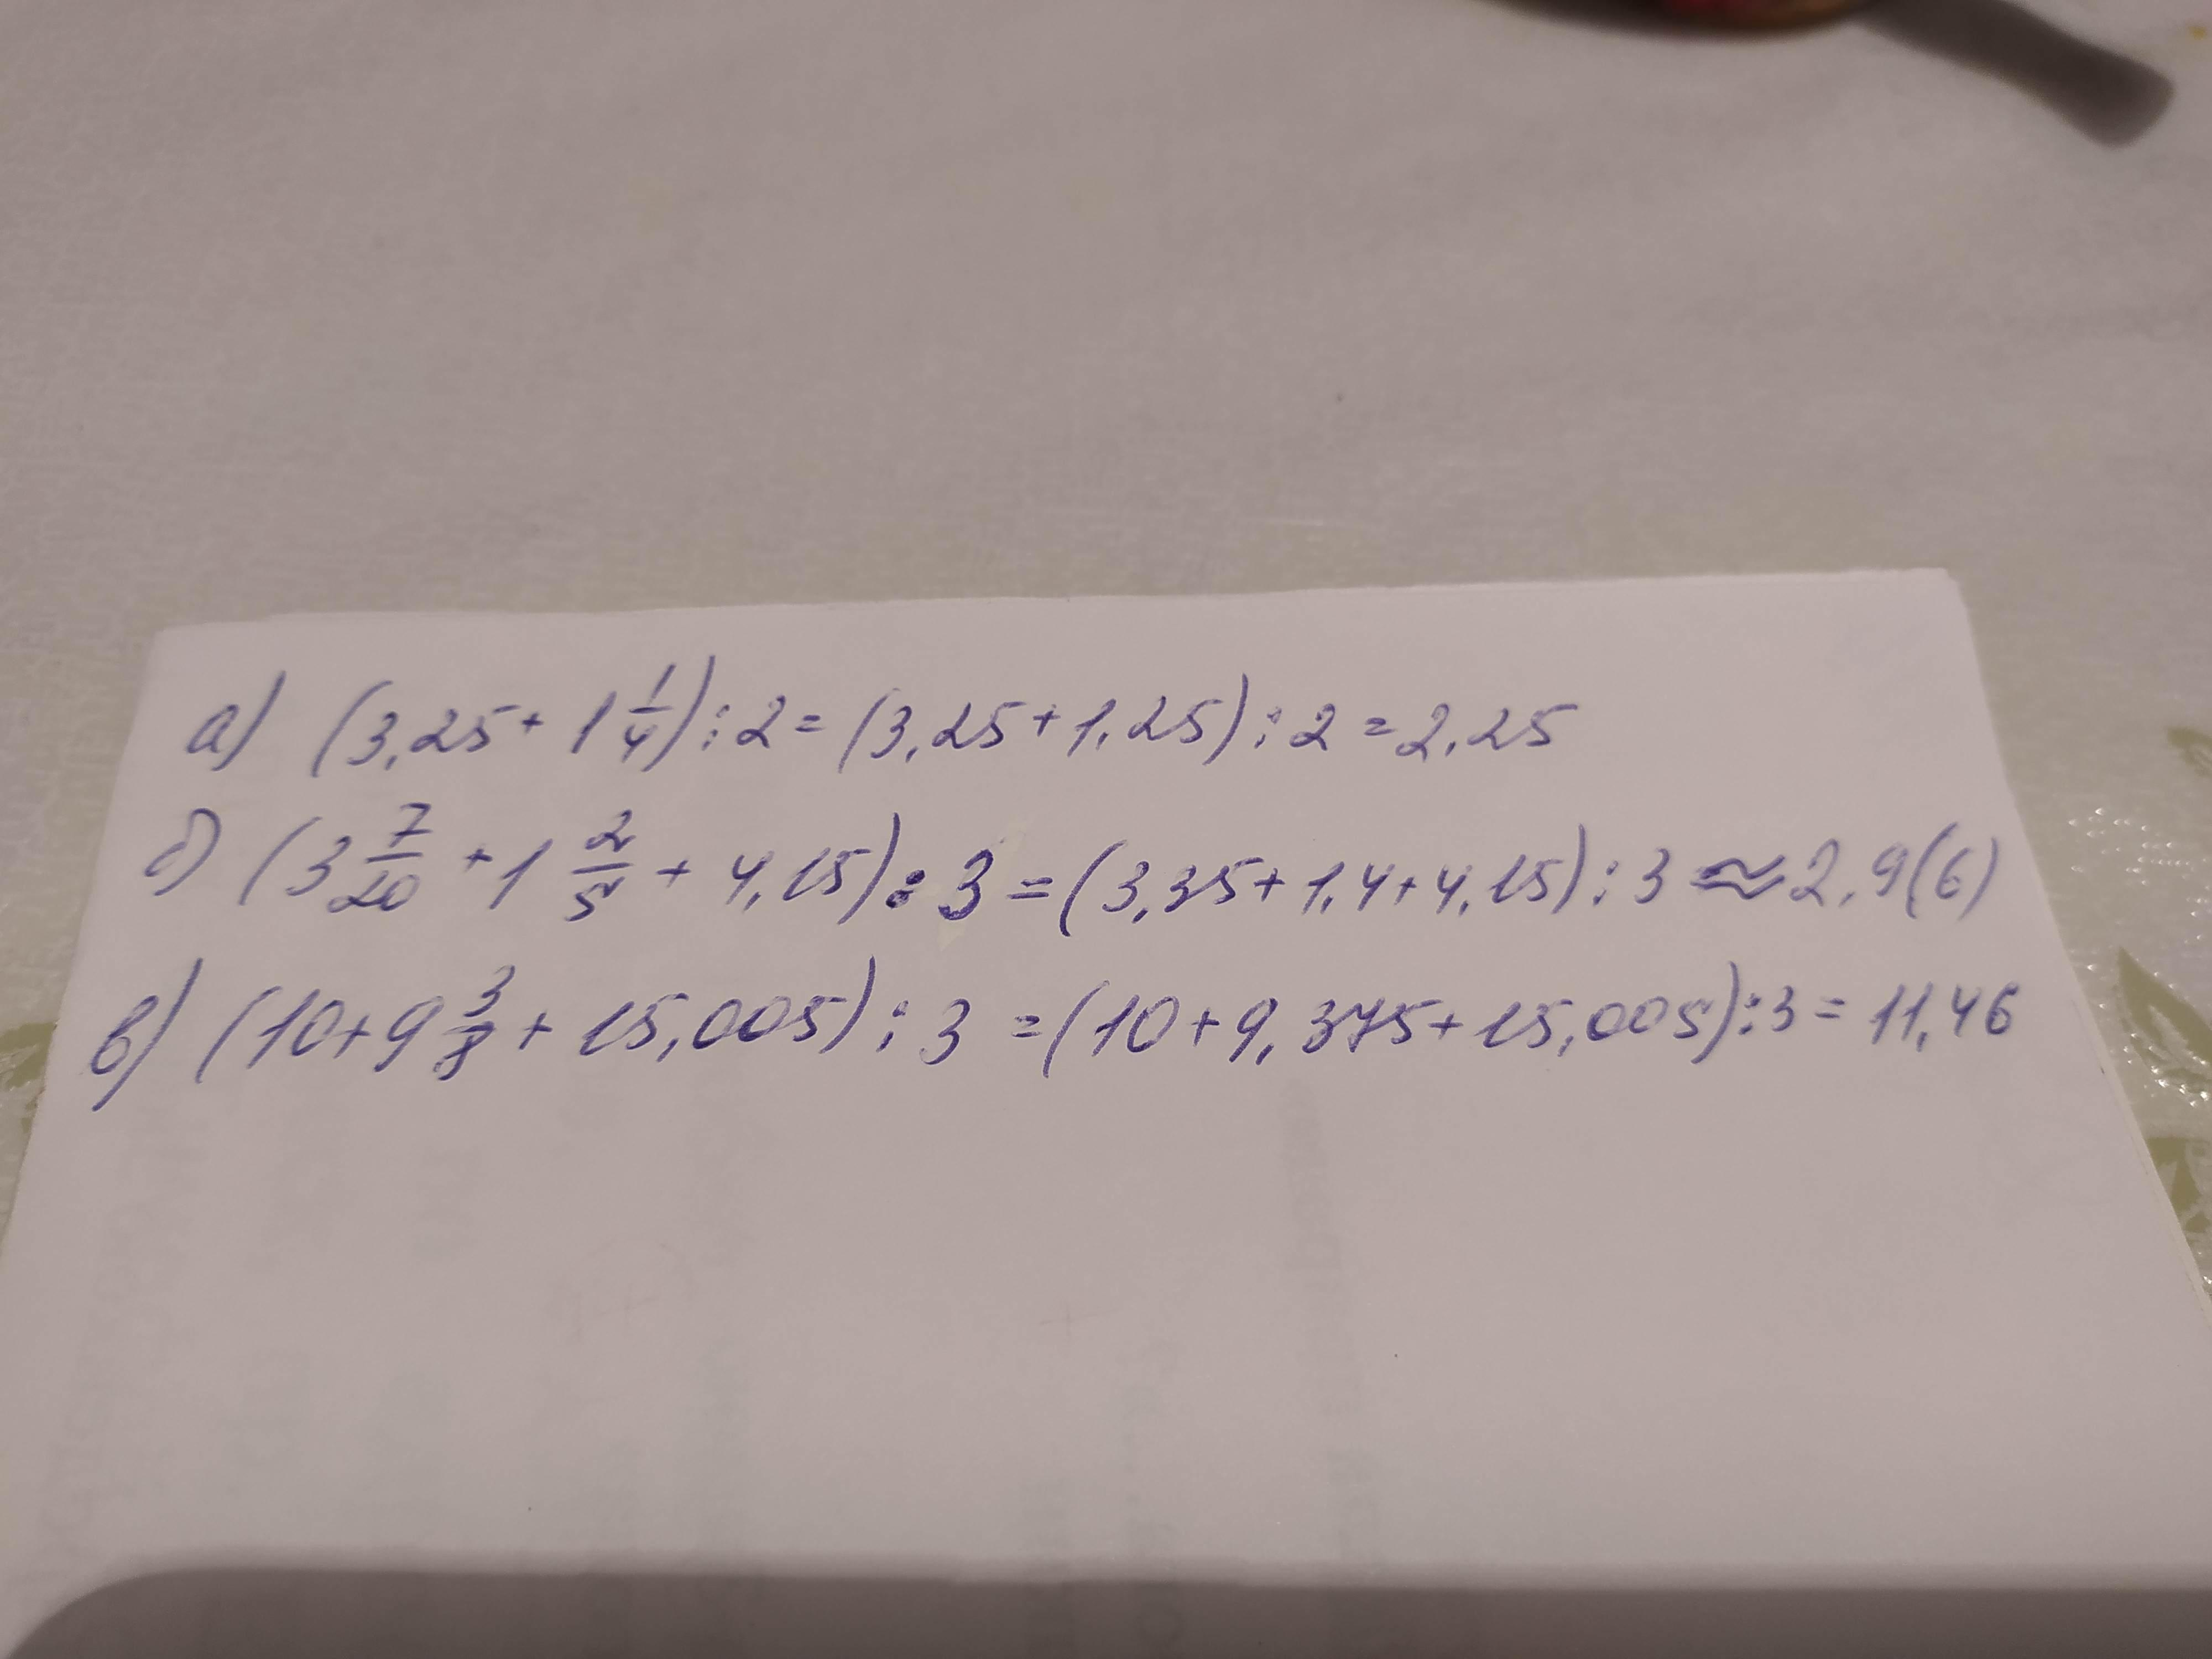 а) (3,25 + 1 1/4) : 2 = (3,25 + 1,25) : 2 = 2,25
б) (3 7/20 + 1 2/5 + 4,15) : 3 = (3,35 + 1,4 + 4,15) : 3 ≈ 2,9(6)
в) (10 + 9 3/8 + 15,005) : 3 = (10 + 9,375 + 15,005) : 3 = 11,46